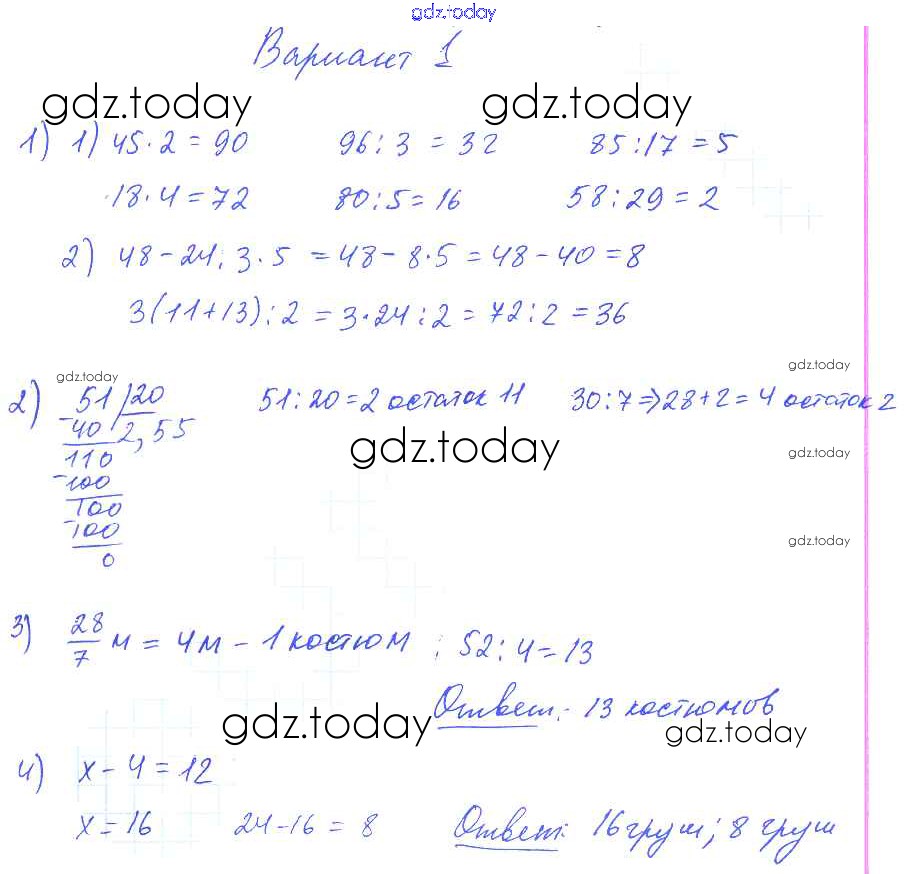 gdz.today
Вариант 1
gdz.today gdz.today
1) 1) 45·2=90 96:3=32 85:17=5
18·4=72 80:5=16 58:29=2
2) 48-24:3·5=48-8·5=48-40=8
3(11+13):2=3·24:2=72:2=36
gdz.today
gdz.today
2) 51 20 51:20=2 остаток 11 30:7⇒28+2=4 остаток 2
-40 2,55
gdz.today gdz.today
110
-100
100
-100
gdz.today
0
3) 28/7 м = 4м - 1 костюм ; 52:4=13
Ответ: 13 костюмов
gdz.today gdz.today
4) x-4=12
x=16 24-16=8 Ответ: 16 груш; 8 груш